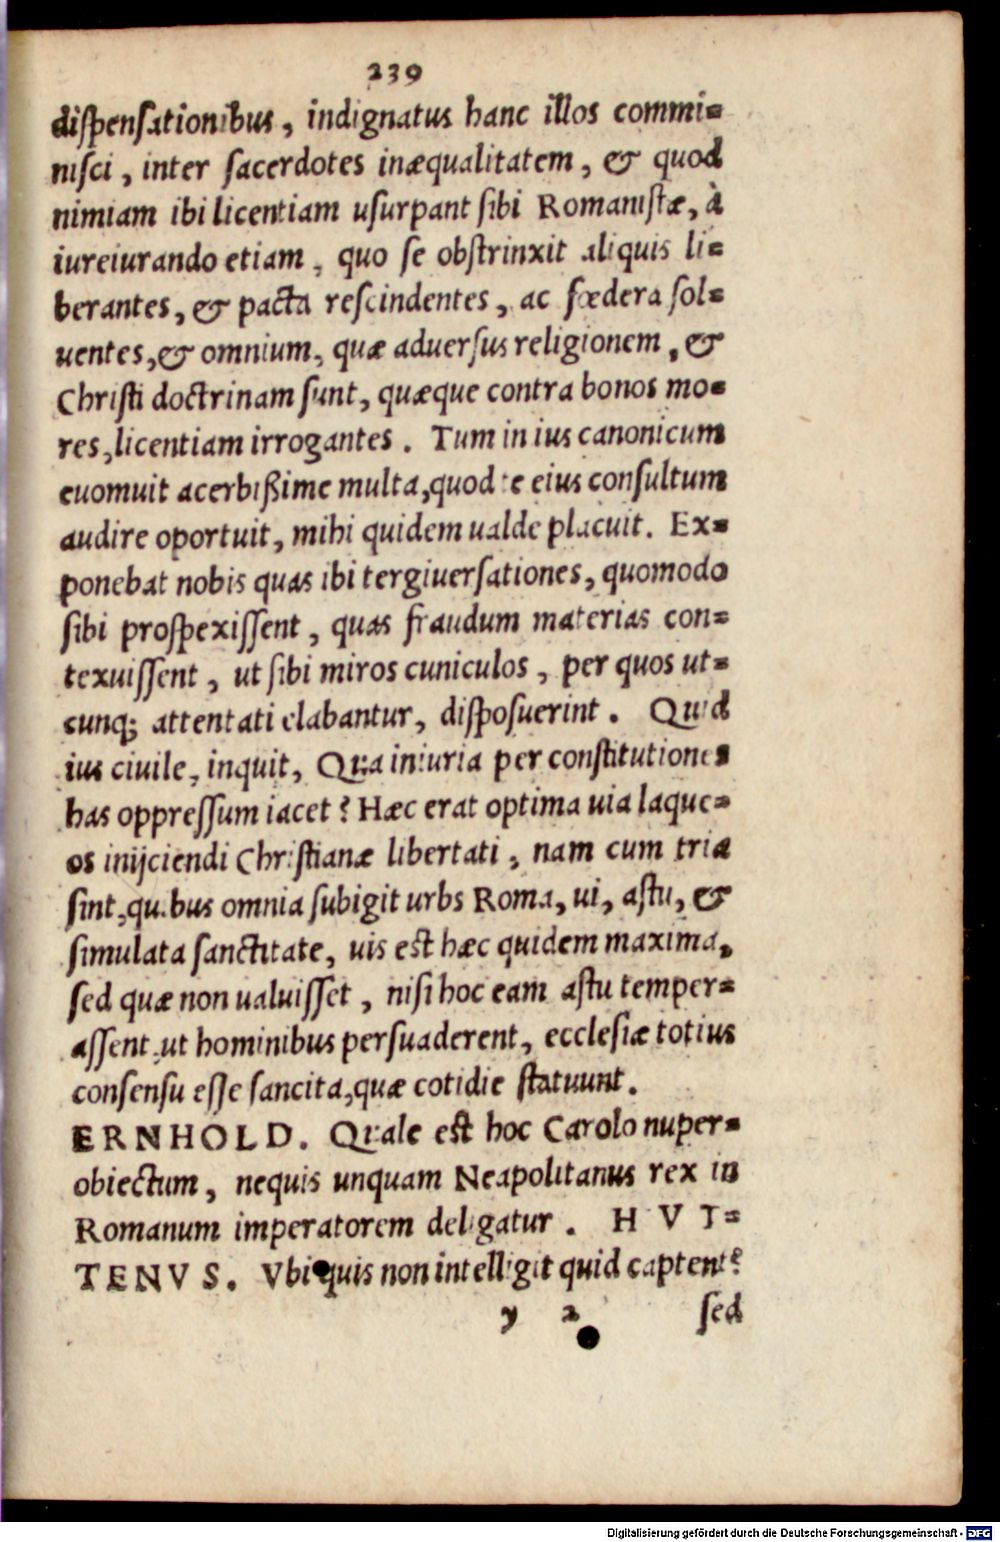 239
dispensationibus, indignatus hanc illos commi=
nisci, inter sacerdotes inæqualitatem, & quod
nimiam ibi licentiam usurpant sibi Romanistæ, à
iureiurando etiam, quo se obstrinxit aliquis li=
berantes, & pacta rescindentes, ac fœdera sol=
uentes, & omnium, quæ aduersus religionem, &
Christi doctrinam sunt, quæque contra bonos mo=
res, licentiam irrogantes. Tum in ius canonicum
euomuit acerbißime multa, quod te eius consultum
audire oportuit, mihi quidem ualde placuit. Ex=
ponebat nobis quas ibi tergiuersationes, quomodo
sibi prospexissent, quas fraudum materias con=
texuissent, ut sibi miros cuniculos, per quos ut=
cunq; attentati elabantur, disposuerint. Quid
ius ciuile, inquit, Qua iniuria per constitutiones
has oppressum iacet? Hæc erat optima uia laque=
os inijciendi Christianæ libertati, nam cum tria
sint, quibus omnia subigit urbs Roma, ui, astu, &
simulata sanctitate, uis est hæc quidem maxima,
sed quæ non ualuisset, nisi hoc eam astu temper=
assent, ut hominibus persuaderent, ecclesiæ totius
consensu esse sancita, quæ cotidie statuunt.
ERNHOLD. Quale est hoc Carolo nuper=
obiectum, nequis unquam Neapolitanus rex in
Romanum imperatorem deligatur. HVT=
TENVS. Vbi quis non intelligit quid captent?
y 2 sed
Digitalisierung gefördert durch die Deutsche Forschungsgemeinschaft - DFG